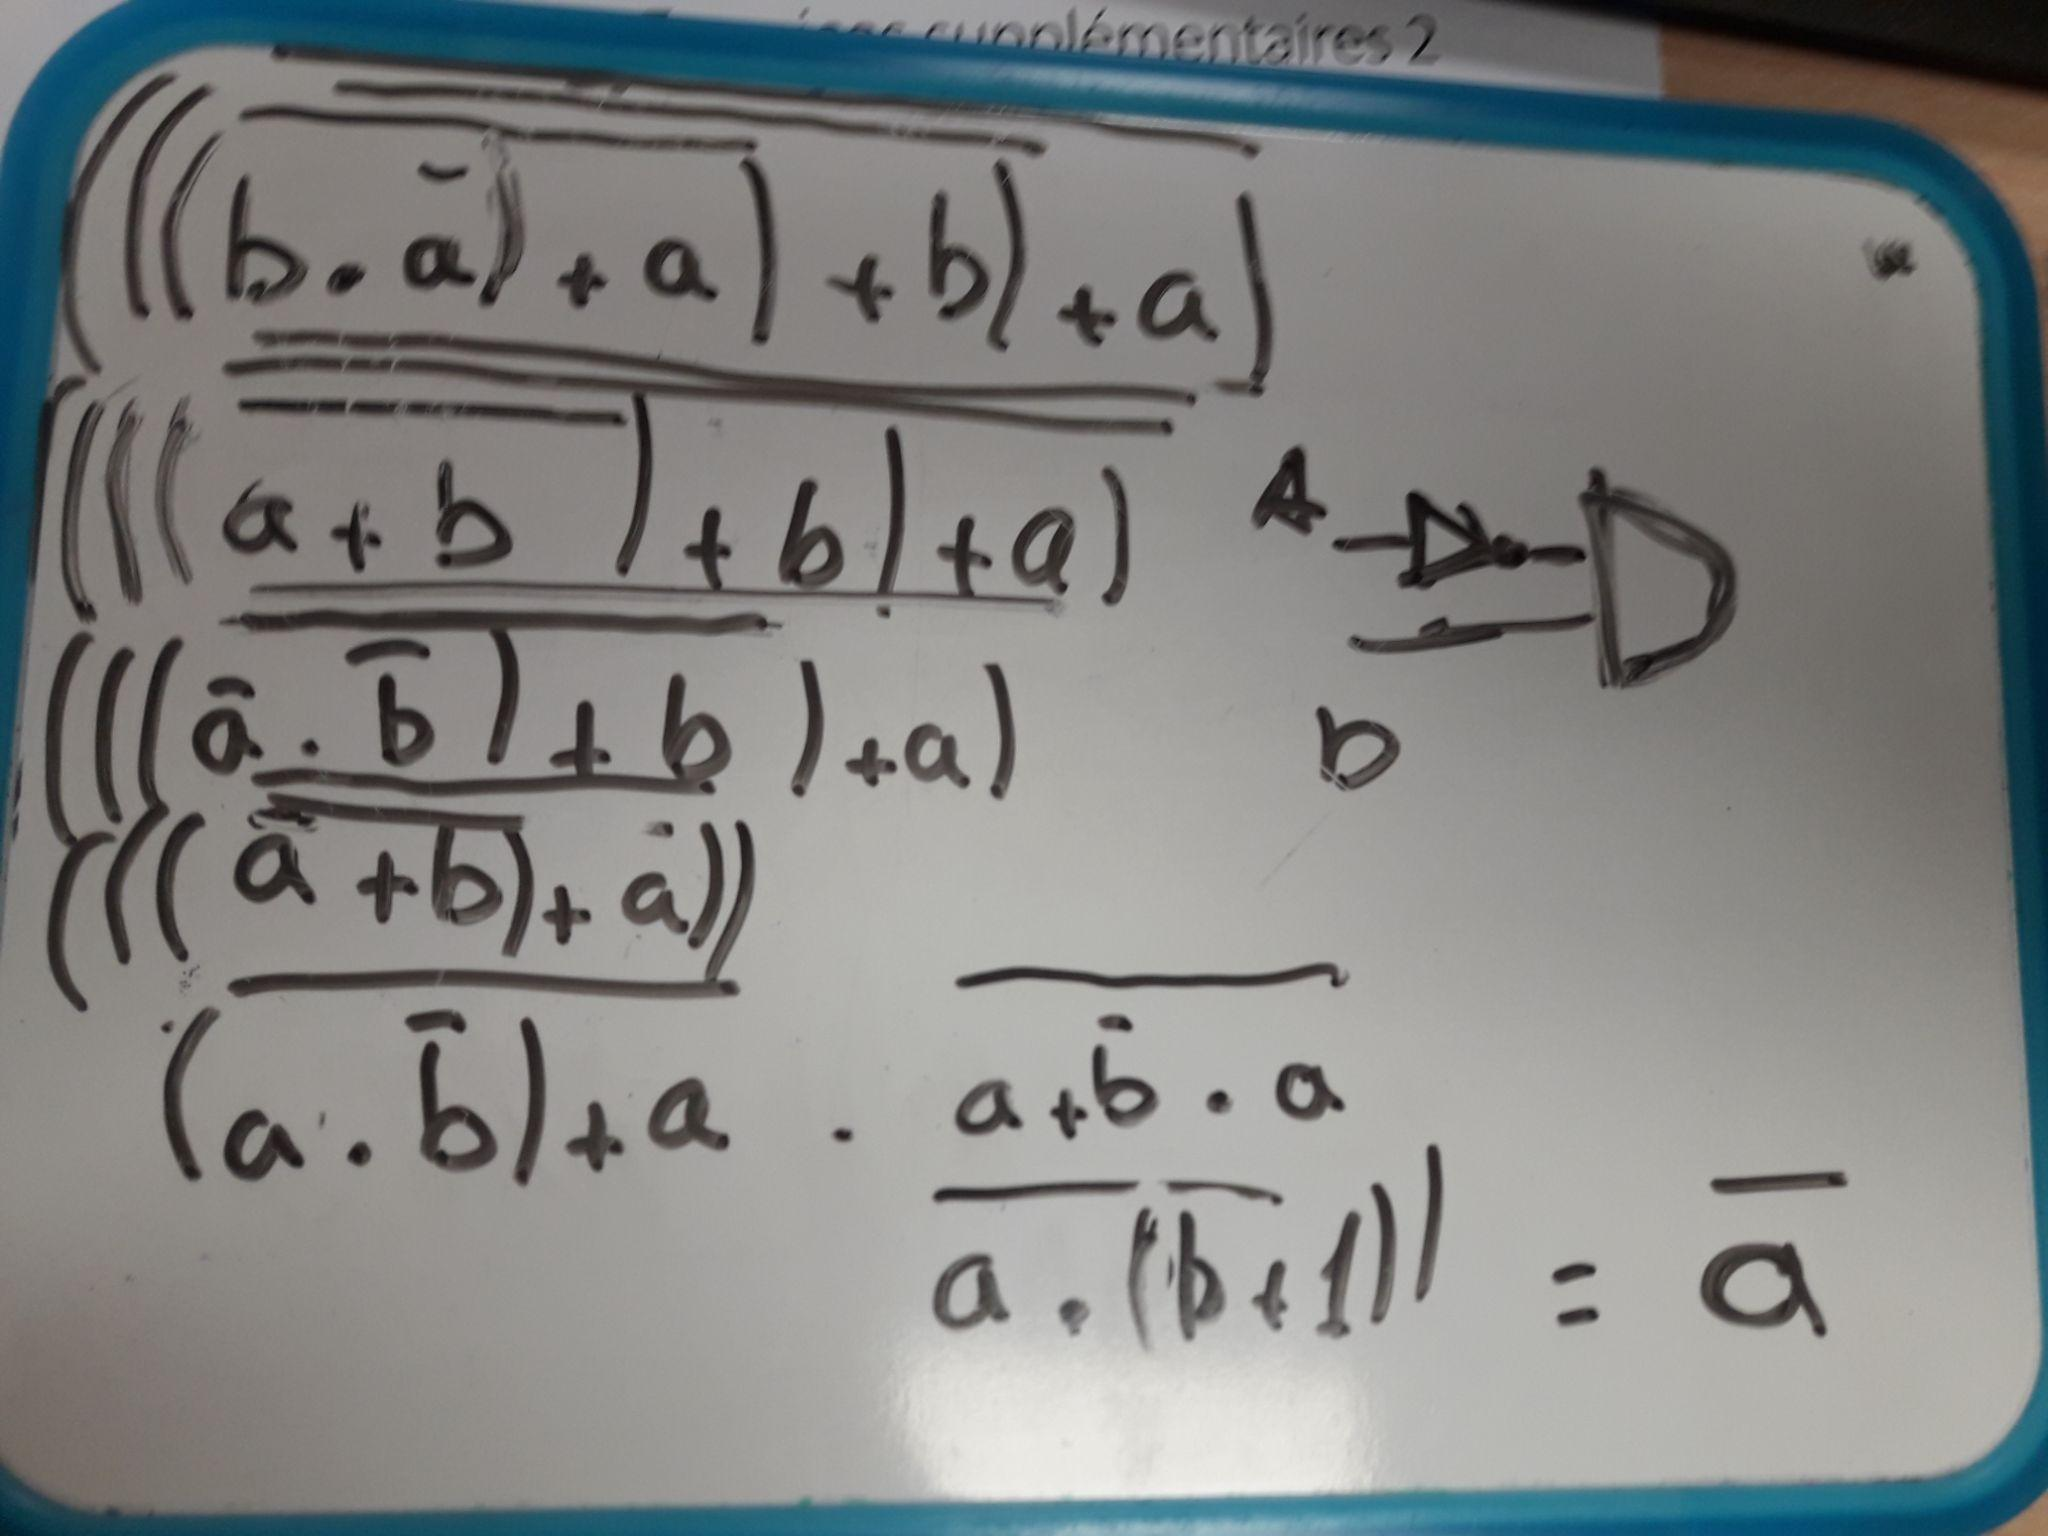 supplémentaires 2
(((b · ā) + a) + b) + a)
(((a + b) + b) + a)
(((ā · b̄) + b) + a)
(((ā + b) + a))
(a · b̄) + a · a + b̄ · a
a · (b + 1)) = ā
A
b